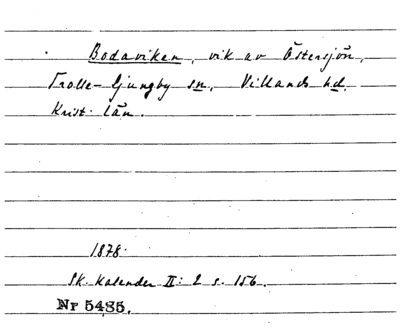 Bodaviken, vik av Östersjön,
Trolle-Ljungby sn, Villands hd,
Krist. län.
1878.
Sk. Kalender II: 2 s. 156.
Nr 5435.